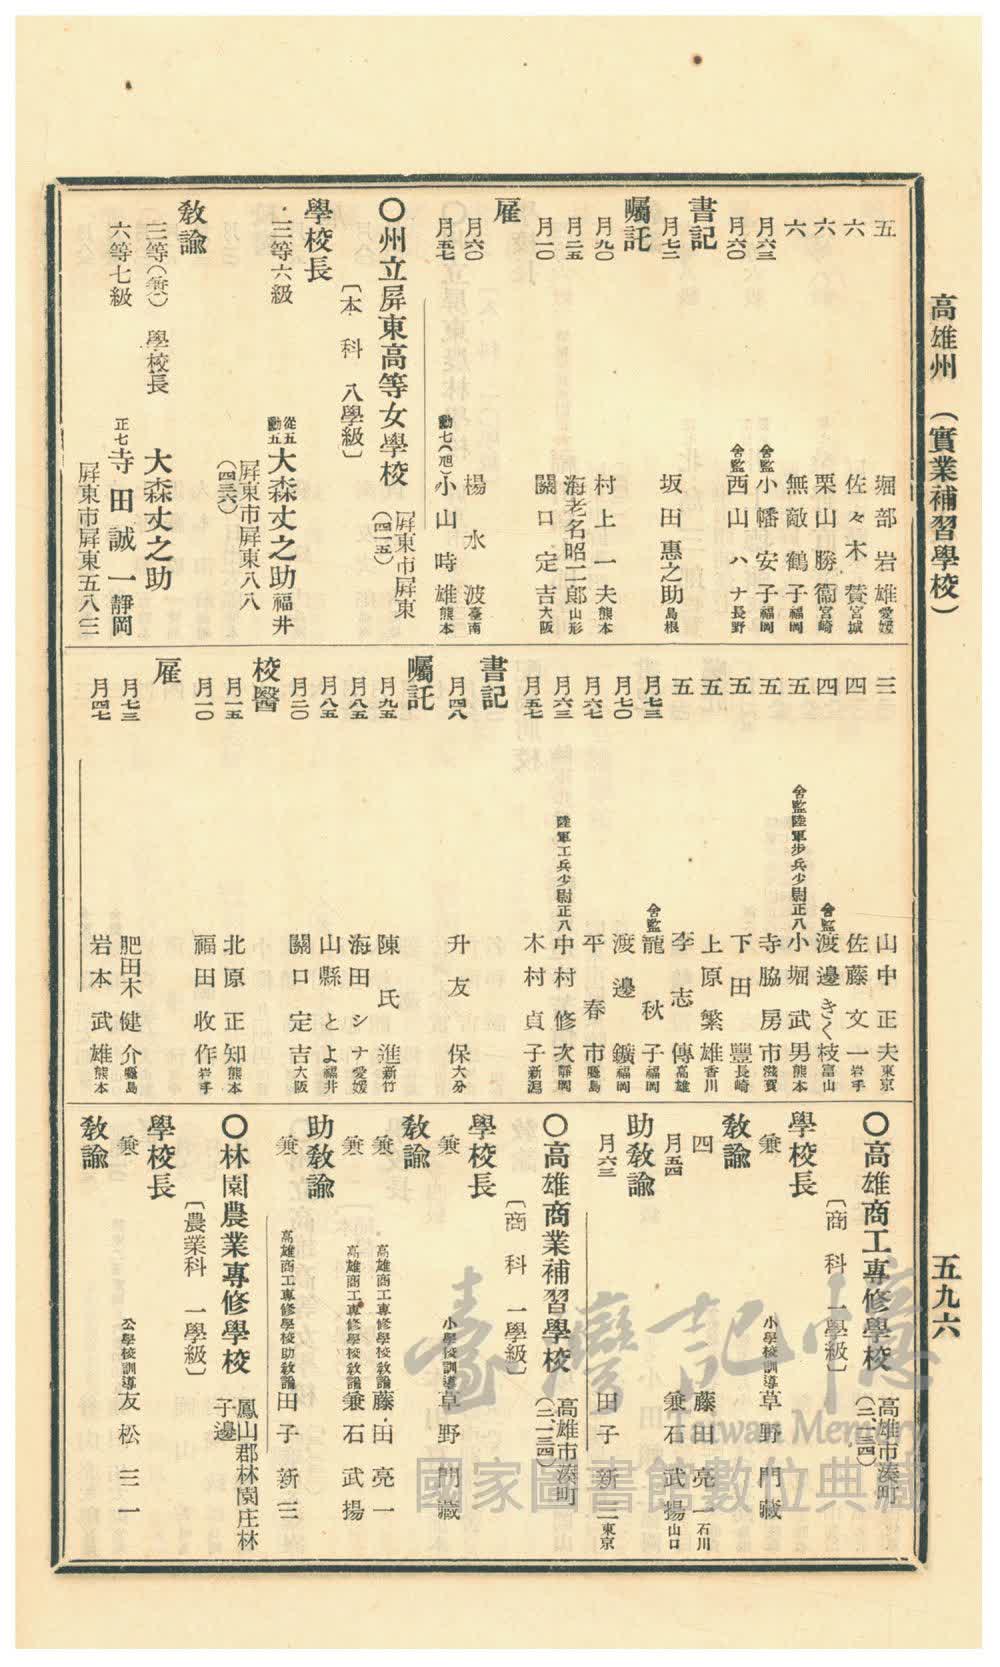 高雄州 (實業補習學校)
五九六
五 堀部岩雄 愛媛
六 佐々木賛 宮城
六 栗山勝衞 宮崎
六 無敵鶴子 福岡
月六三 舍監 小幡安子 福岡
月六〇 舍監 西山ハナ 長野
書記
月七二 坂田惠之助 島根
囑託
月九〇 村上一夫 熊本
月二五 海老名昭二郎 山形
月一〇 關口定吉 大阪
雇
月六〇 楊水波 臺南
月五七 勳七(旭) 小山時雄 熊本
〇州立屏東高等女學校 屏東市屏東(四一五)
〔本科 八學級〕
學校長
三等六級 從五勳五 大森丈之助 福井
屏東市屏東八八(四三六)
敎諭
三等 學校長 大森丈之助
六等七級 正七 寺田誠一 靜岡
屏東市屏東五八三
三 山中正夫 東京
四 佐藤文一 岩手
四 舍監 渡邊きく枝 富山
五 舍監陸軍步兵少尉正八 小堀武男 熊本
五 寺脇房市 滋賀
五 下田豐 長崎
五 上原繁雄 香川
五 李志傳 高雄
月七三 舍監 龍秋子 福岡
月七〇 渡邊鑛 福岡
月六七 平春市
月六三 陸軍工兵少尉正八 中村修次 靜岡
月五七 木村貞子 新潟
書記
月四八 升友保 大分
囑託
月九五 陳氏進 新竹
月八五 海田シナ 愛媛
月八五 山縣とよ 福井
月二〇 關口定吉 大阪
校醫
月一五 北原正知 熊本
月一〇 福田收作 岩手
雇
月七三 肥田木健介
月四七 岩本武雄 熊本
〇高雄商工專修學校 高雄市湊町(二、一三四)
〔商科 一學級〕
學校長
兼 小學校訓導 草野門藏
敎諭
四 藤田亮一 石川
月五四 兼 石武揚 山口
助敎諭
月六三 田子新三 東京
〇高雄商業補習學校 高雄市湊町(二、一三四)
〔商科 一學級〕
學校長
兼 小學校訓導 草野門藏
敎諭
兼 高雄商工專修學校敎諭 藤田亮一
兼 高雄商工專修學校敎諭 兼石武揚
助敎諭
兼 高雄商工專修學校助敎諭 田子新三
〇林園農業專修學校 鳳山郡林園庄林子邊
〔農業科 一學級〕
學校長
兼 公學校訓導 友松三一
敎諭
臺灣記憶
Taiwan Memory
國家圖書館數位典藏